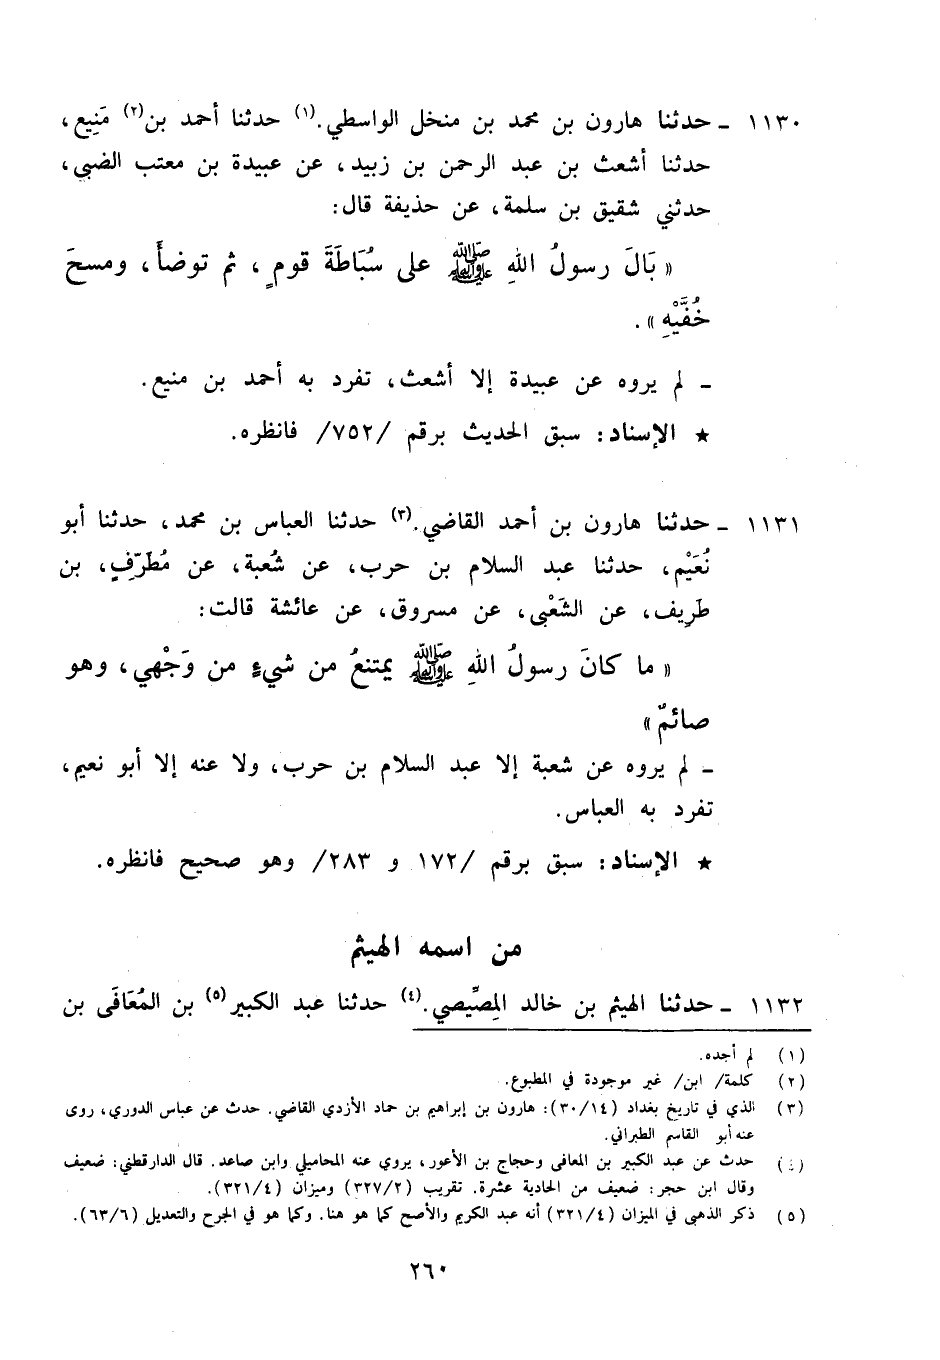 ١١٣٠ ـ حدثنا هارون بن محمد بن منخل الواسطي.(١) حدثنا أحمد بن(٢) مَنِيع،
حدثنا أشعث بن عبد الرحمن بن زبيد، عن عبيدة بن معتب الضبي،
حدثني شقيق بن سلمة، عن حذيفة قال:
« بَالَ رسولُ اللهِ ﷺ على سُبَاطَةَ قومٍ، ثم توضأَ، ومسحَ
خُفَّيْهِ ».
ـ لم يروه عن عبيدة إلا أشعث، تفرد به أحمد بن منيع.
★ الإسناد: سبق الحديث برقم /٧٥٢/ فانظره.
١١٣١ ـ حدثنا هارون بن أحمد القاضي.(٣) حدثنا العباس بن محمد، حدثنا أبو
نُعَيْم، حدثنا عبد السلام بن حرب، عن شُعبة، عن مُطَرّفٍ، بن
طَرِيف، عن الشَعْبي، عن مسروق، عن عائشة قالت:
« ما كانَ رسولُ اللهِ ﷺ يمتنعُ من شيءٍ من وَجْهي، وهو
صائمٌ »
ـ لم يروه عن شعبة إلا عبد السلام بن حرب، ولا عنه إلا أبو نعيم،
تفرد به العباس.
★ الإسناد: سبق برقم /١٧٢ و ٢٨٣/ وهو صحيح فانظره.
من اسمه الهيثم
١١٣٢ ـ حدثنا الهيثم بن خالد المِصِّيصي.(٤) حدثنا عبد الكبير(٥) بن المُعَافَى بن
(١) لم أجده.
(٢) كلمة/ ابن/ غير موجودة في المطبوع.
(٣) الذي في تاريخ بغداد (٣٠/١٤): هارون بن إبراهيم بن حماد الأزدي القاضي. حدث عن عباس الدوري، روى
عنه أبو القاسم الطبراني.
(٤) حدث عن عبد الكبير بن المعافى وحجاج بن الأعور، يروي عنه المحاميلي وابن صاعد. قال الدارقطني: ضعيف
وقال ابن حجر: ضعيف من الحادية عشرة. تقريب (٣٢٧/٢) وميزان (٣٢١/٤).
(٥) ذكر الذهبي في الميزان (٣٢١/٤) أنه عبد الكريم والأصح كما هو هنا. وكما هو في الجرح والتعديل (٦٣/٦).
٢٦٠